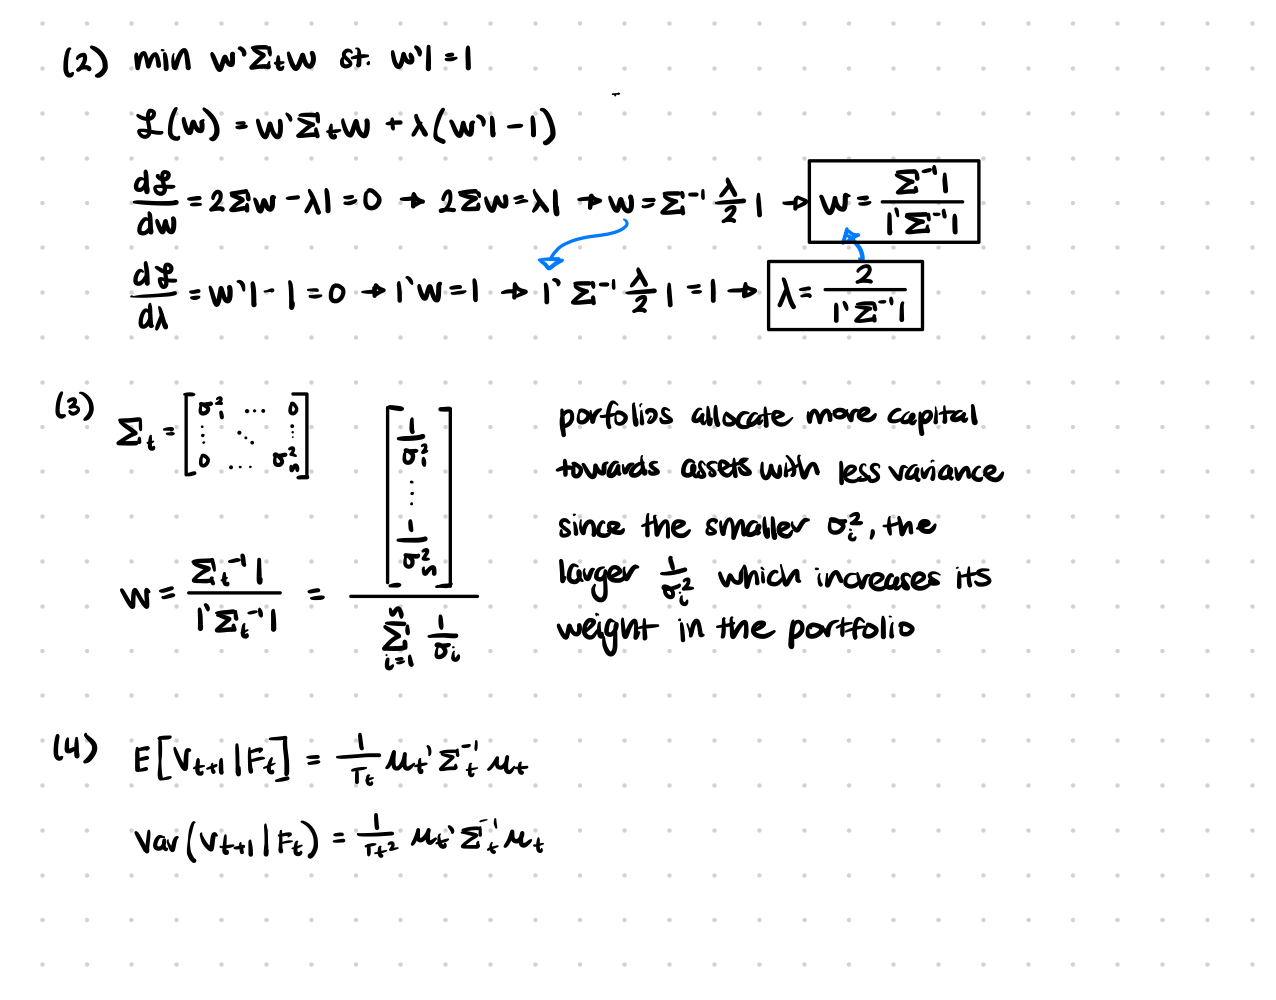 (2) min w'Σ_t w st. w'1 = 1
ℒ(w) = w'Σ_t w + λ(w'1 - 1)
dℒ/dw = 2Σw - λ1 = 0 → 2Σw = λ1 → w = Σ⁻¹ λ/2 1 → w = Σ⁻¹1 / 1'Σ⁻¹1
dℒ/dλ = w'1 - 1 = 0 → 1'w = 1 → 1' Σ⁻¹ λ/2 1 = 1 → λ = 2 / 1'Σ⁻¹1
(3) Σ_t = [σ₁² ... 0 ⋮ ⋱ ⋮ 0 ... σ_n²]
w = Σ_t⁻¹1 / 1'Σ_t⁻¹1 = [1/σ₁² ⋮ 1/σ_n²] / Σ_{i=1}^n 1/σ_i
porfolios allocate more capital
towards assets with less variance
since the smaller σ_i², the
larger 1/σ_i² which increases its
weight in the portfolio
(4) E[V_{t+1} | F_t] = 1/τ_t μ_t' Σ_t⁻¹ μ_t
Var(V_{t+1} | F_t) = 1/τ_t² μ_t' Σ_t⁻¹ μ_t